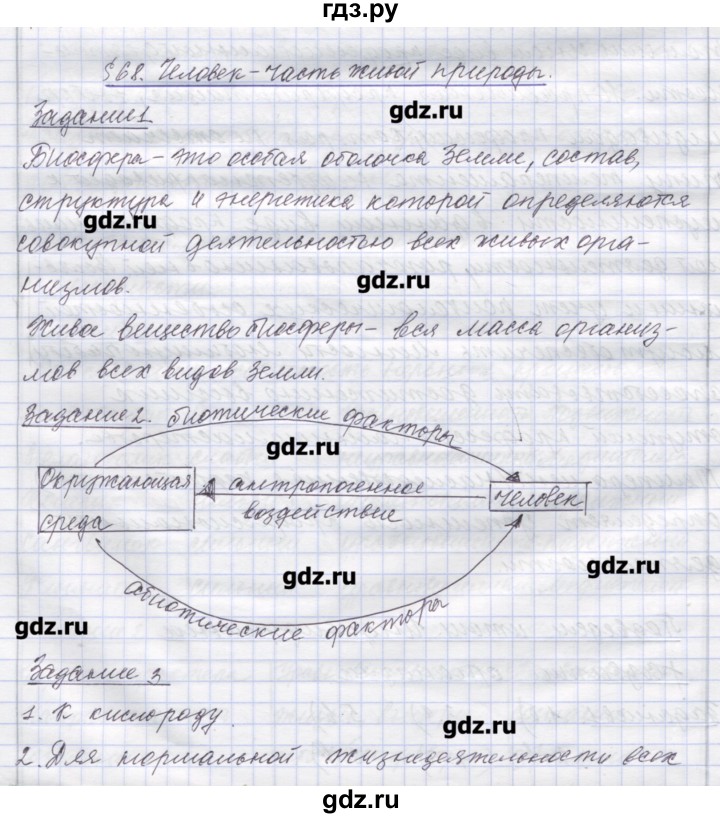 гдз.ру
§68. Человек – часть живой природы.
Задание 1
gdz.ru
Биосфера – это особая оболочка Земли, состав,
структура и энергетика которой определяются
gdz.ru
совокупной деятельностью всех живых орга-
низмов.
gdz.ru
Живое вещество биосферы – вся масса организ-
мов всех видов Земли.
Задание 2. биотические факторы
gdz.ru
Окружающая
среда
антропогенное
воздействие
человек
gdz.ru
gdz.ru
абиотические факторы
gdz.ru
Задание 3
1. К кислороду.
gdz.ru
2. Для нормальной жизнедеятельности всех
gdz.ru